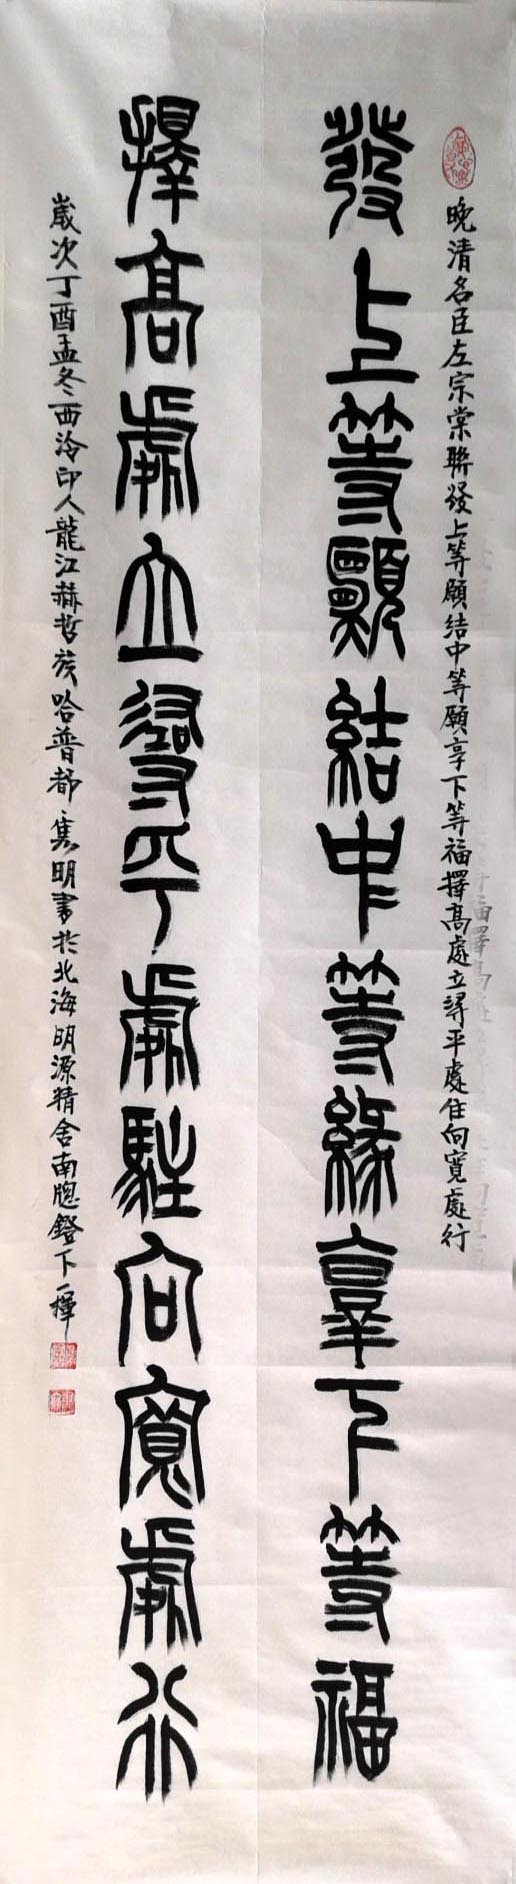 晚清名臣左宗棠聯發上等願結中等願享下等福擇高處立尋平處住向寬處行
發上等願結中等緣享下等福
擇高處立尋平處駐向寬處行
歲次丁酉孟冬西泠印人龍江赫哲族哈普都·雋明書於北海明源精舍南牕鐙下一揮